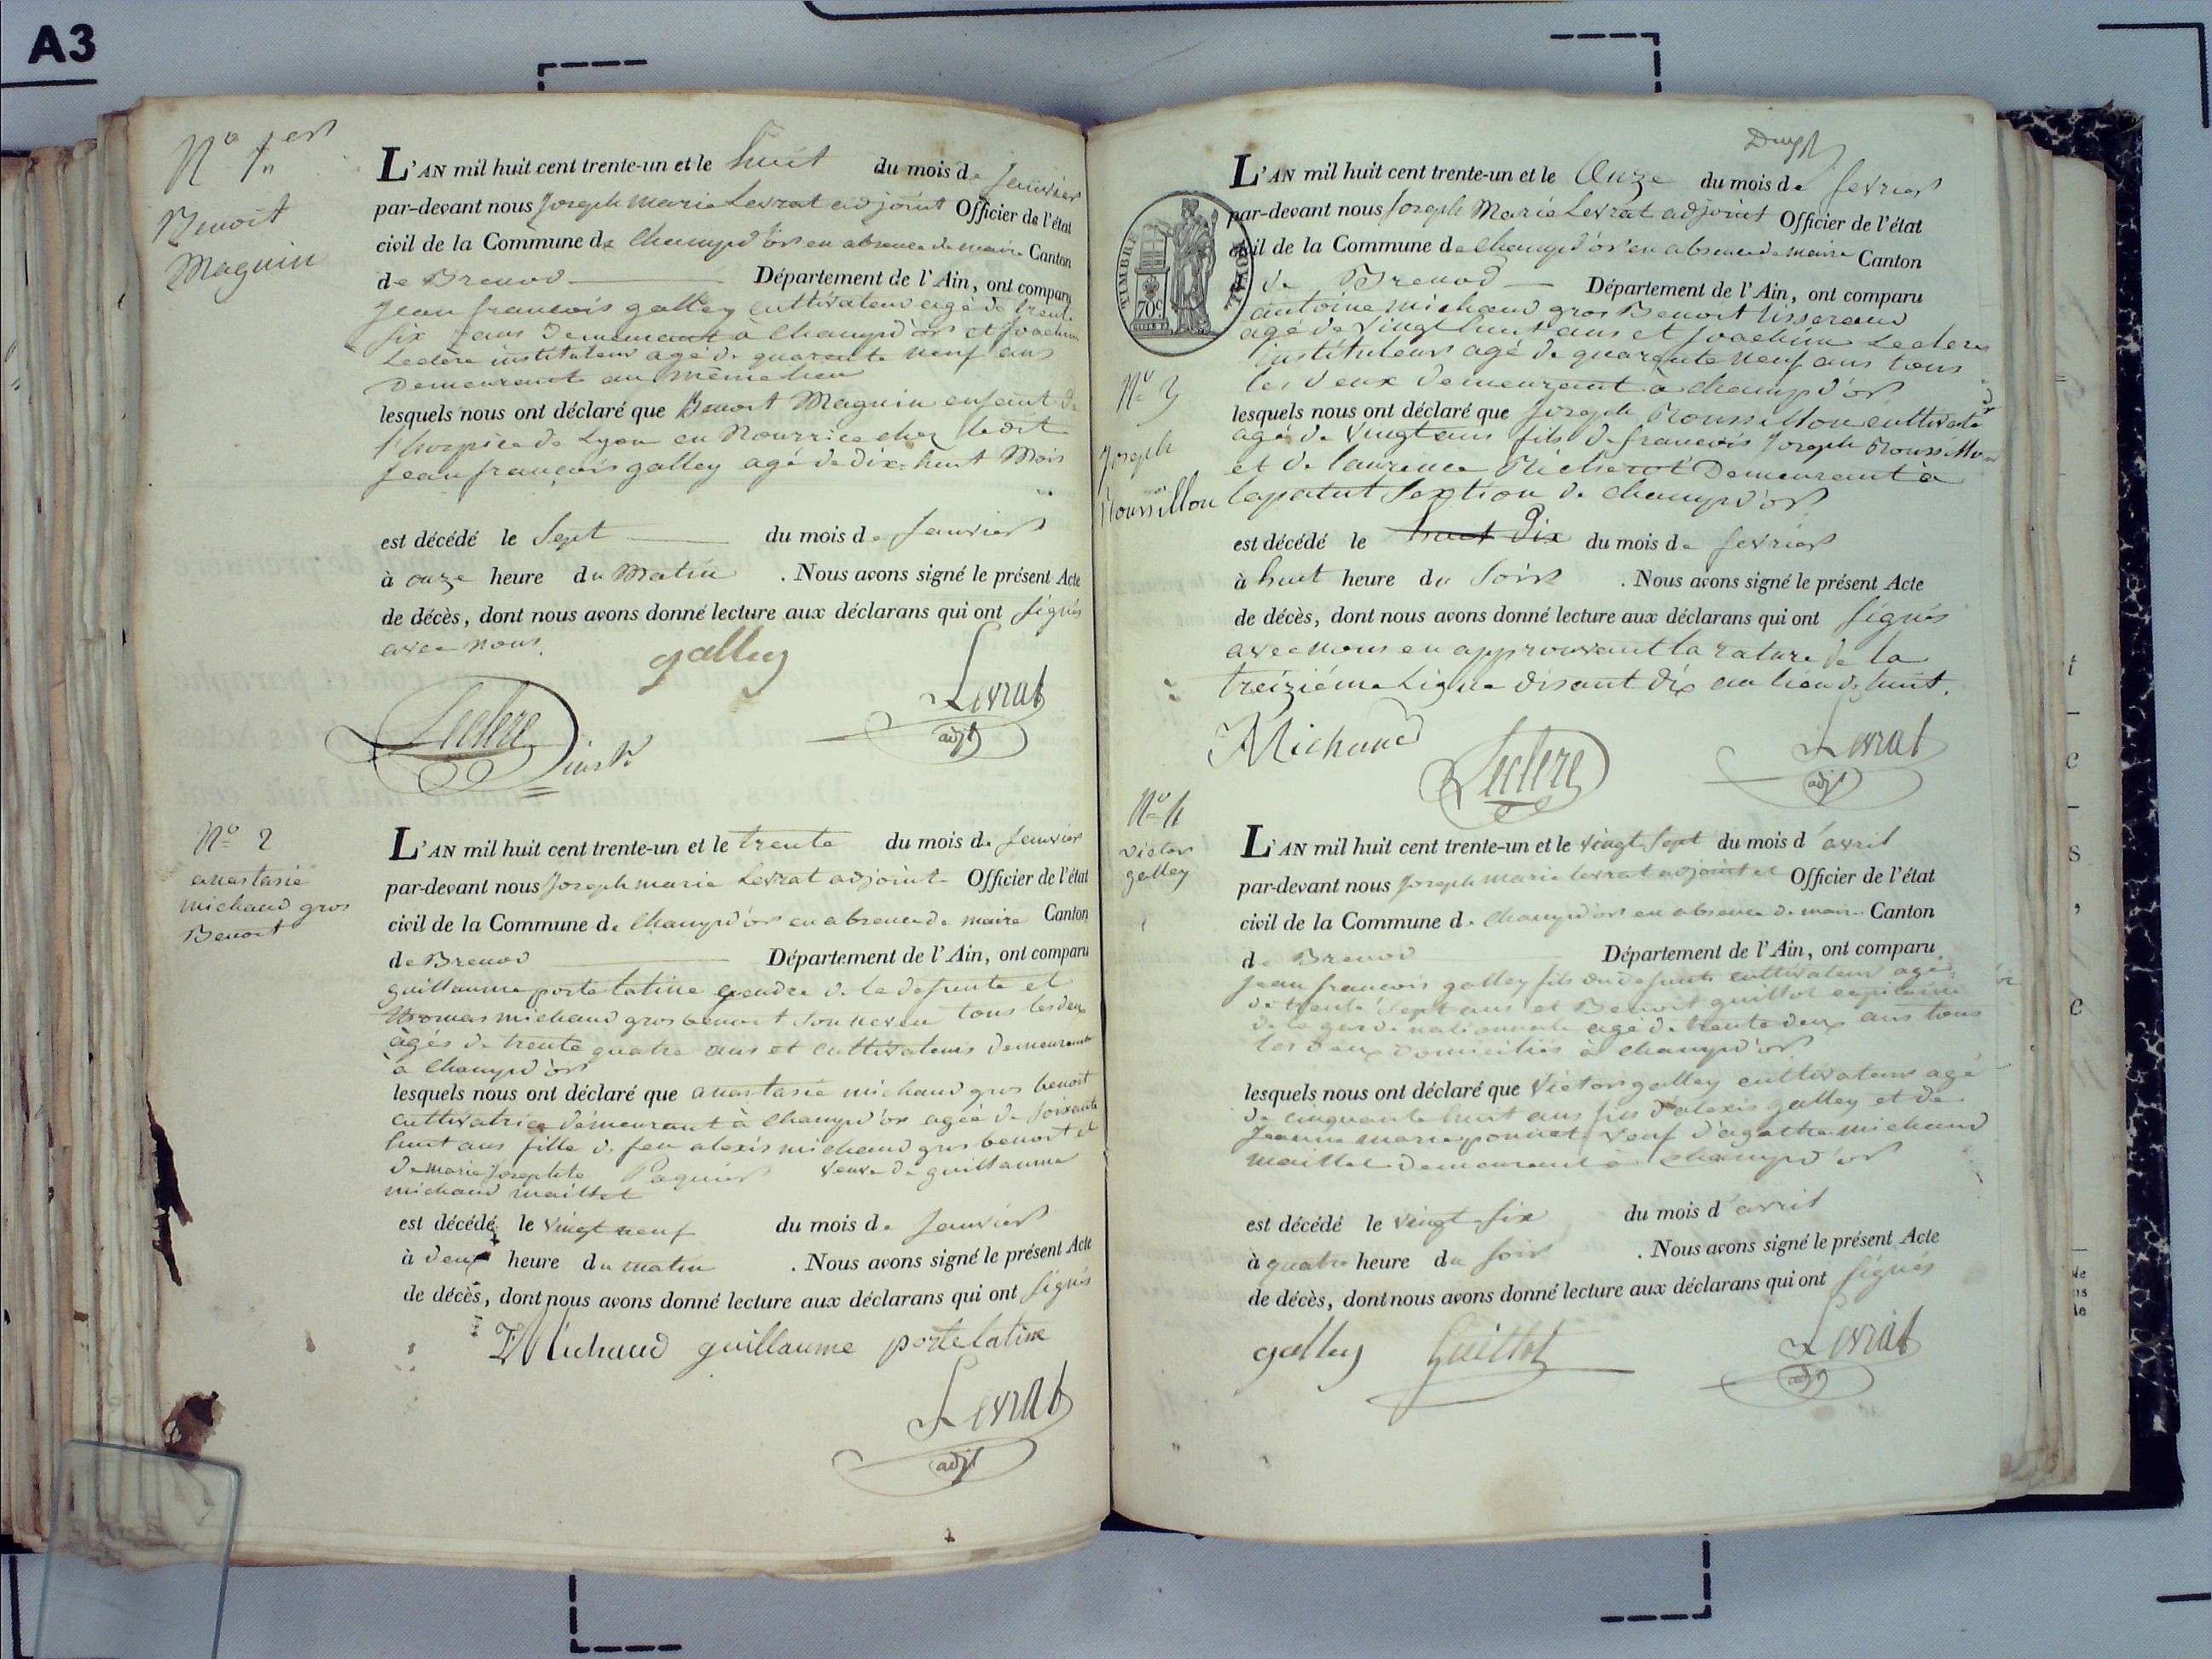 A3
No 1er
Benoit
Maguin
L'AN mil huit cent trente-un et le huit du mois de Janvier
par-devant nous Joseph Marie Levrat adjoint Officier de l'état
civil de la Commune de Champd'or en absence de maire Canton
de Brenod Département de l'Ain, ont comparu
Jean francois galley cultivateur agé de trente
six ans Demeurant à Champd'or et Joachim
Leclere instituteur agé de quarante neuf ans
Demeurants au même lieu
lesquels nous ont déclaré que Benoit Maguin enfant de
l'hospice de Lyon en Nourrice chez ledit
Jean françois galley agé de dix-huit Mois
est décédé le Sept du mois de Janvier
à onze heure du Matin . Nous avons signé le présent Acte
de décès, dont nous avons donné lecture aux déclarans qui ont signés
avec nous.
galley
Levrat
adjt
Leclere
instr
No 2
anastasie
michaud gros
Benoit
L'AN mil huit cent trente-un et le trente du mois de Janvier
par-devant nous Joseph marie Levrat adjoint Officier de l'état
civil de la Commune de Champd'or en absence de maire Canton
de Brenod Département de l'Ain, ont comparu
guillaume porte latine gendre de la defunte et
thomas michaud gros benoit son neveu tous les deux
agés de trente quatre ans et cultivateurs demeurants
à Champd'or
lesquels nous ont déclaré que anastasie michaud gros benoit
cultivatrice demeurant à Champd'or agée de soixante
huit ans fille de feu alexis michaud gros benoit et
de marie Josephte Paquier veuve de guillaume
michaud maillet
est décédé le vingt neuf du mois de Janvier
à deux heure du matin . Nous avons signé le présent Acte
de décès, dont nous avons donné lecture aux déclarans qui ont signés
Michaud guillaume porte latine
Levrat
adjt
L'AN mil huit cent trente-un et le Onze du mois de fevrier
par-devant nous Joseph Marie Levrat adjoint Officier de l'état
civil de la Commune de Champd'or en absence de maire Canton
de Brenod Département de l'Ain, ont comparu
antoine michaud gros Benoit tisserand
agé de vingt huit ans et Joachim Leclere
instituteur agé de quarante neuf ans tous
les deux demeurant à Champd'or
TIMBRE ROYAL
70c
No 3
Joseph
Roussillon
lesquels nous ont déclaré que Joseph Roussillon cultivateur
agé de vingt ans fils de francois Joseph Roussillon
et de laurence Richerot Demeurant à
lapatut Section de Champd'or
est décédé le huit Dix du mois de fevrier
à huit heure du Soir . Nous avons signé le présent Acte
de décès, dont nous avons donné lecture aux déclarans qui ont signés
avec nous en approuvant la rature de la
treiziéme Ligne disant dix au lieu de huit.
Michaud
Leclere
Levrat
adjt
No 4
victor
galley
L'AN mil huit cent trente-un et le vingt sept du mois d'avril
par-devant nous Joseph marie levrat adjoint et Officier de l'état
civil de la Commune de Champd'or en absence de maire Canton
de Brenod Département de l'Ain, ont comparu
Jean francois galley fils du defunt cultivateur agé
de trente sept ans et Benoit guillot capitaine
de la garde nationnale agé de trente deux ans tous
les deux domiciliés à Champd'or
lesquels nous ont déclaré que Victor galley cultivateur agé
de cinquante huit ans fils d'alexis galley et de
Jeanne marie ponnet veuf d'agathe michaud
maillet demeurant à Champd'or
est décédé le vingt six du mois d'avril
à quatre heure du soir . Nous avons signé le présent Acte
de décès, dont nous avons donné lecture aux déclarans qui ont signés
galley Guillot Levrat
adjt